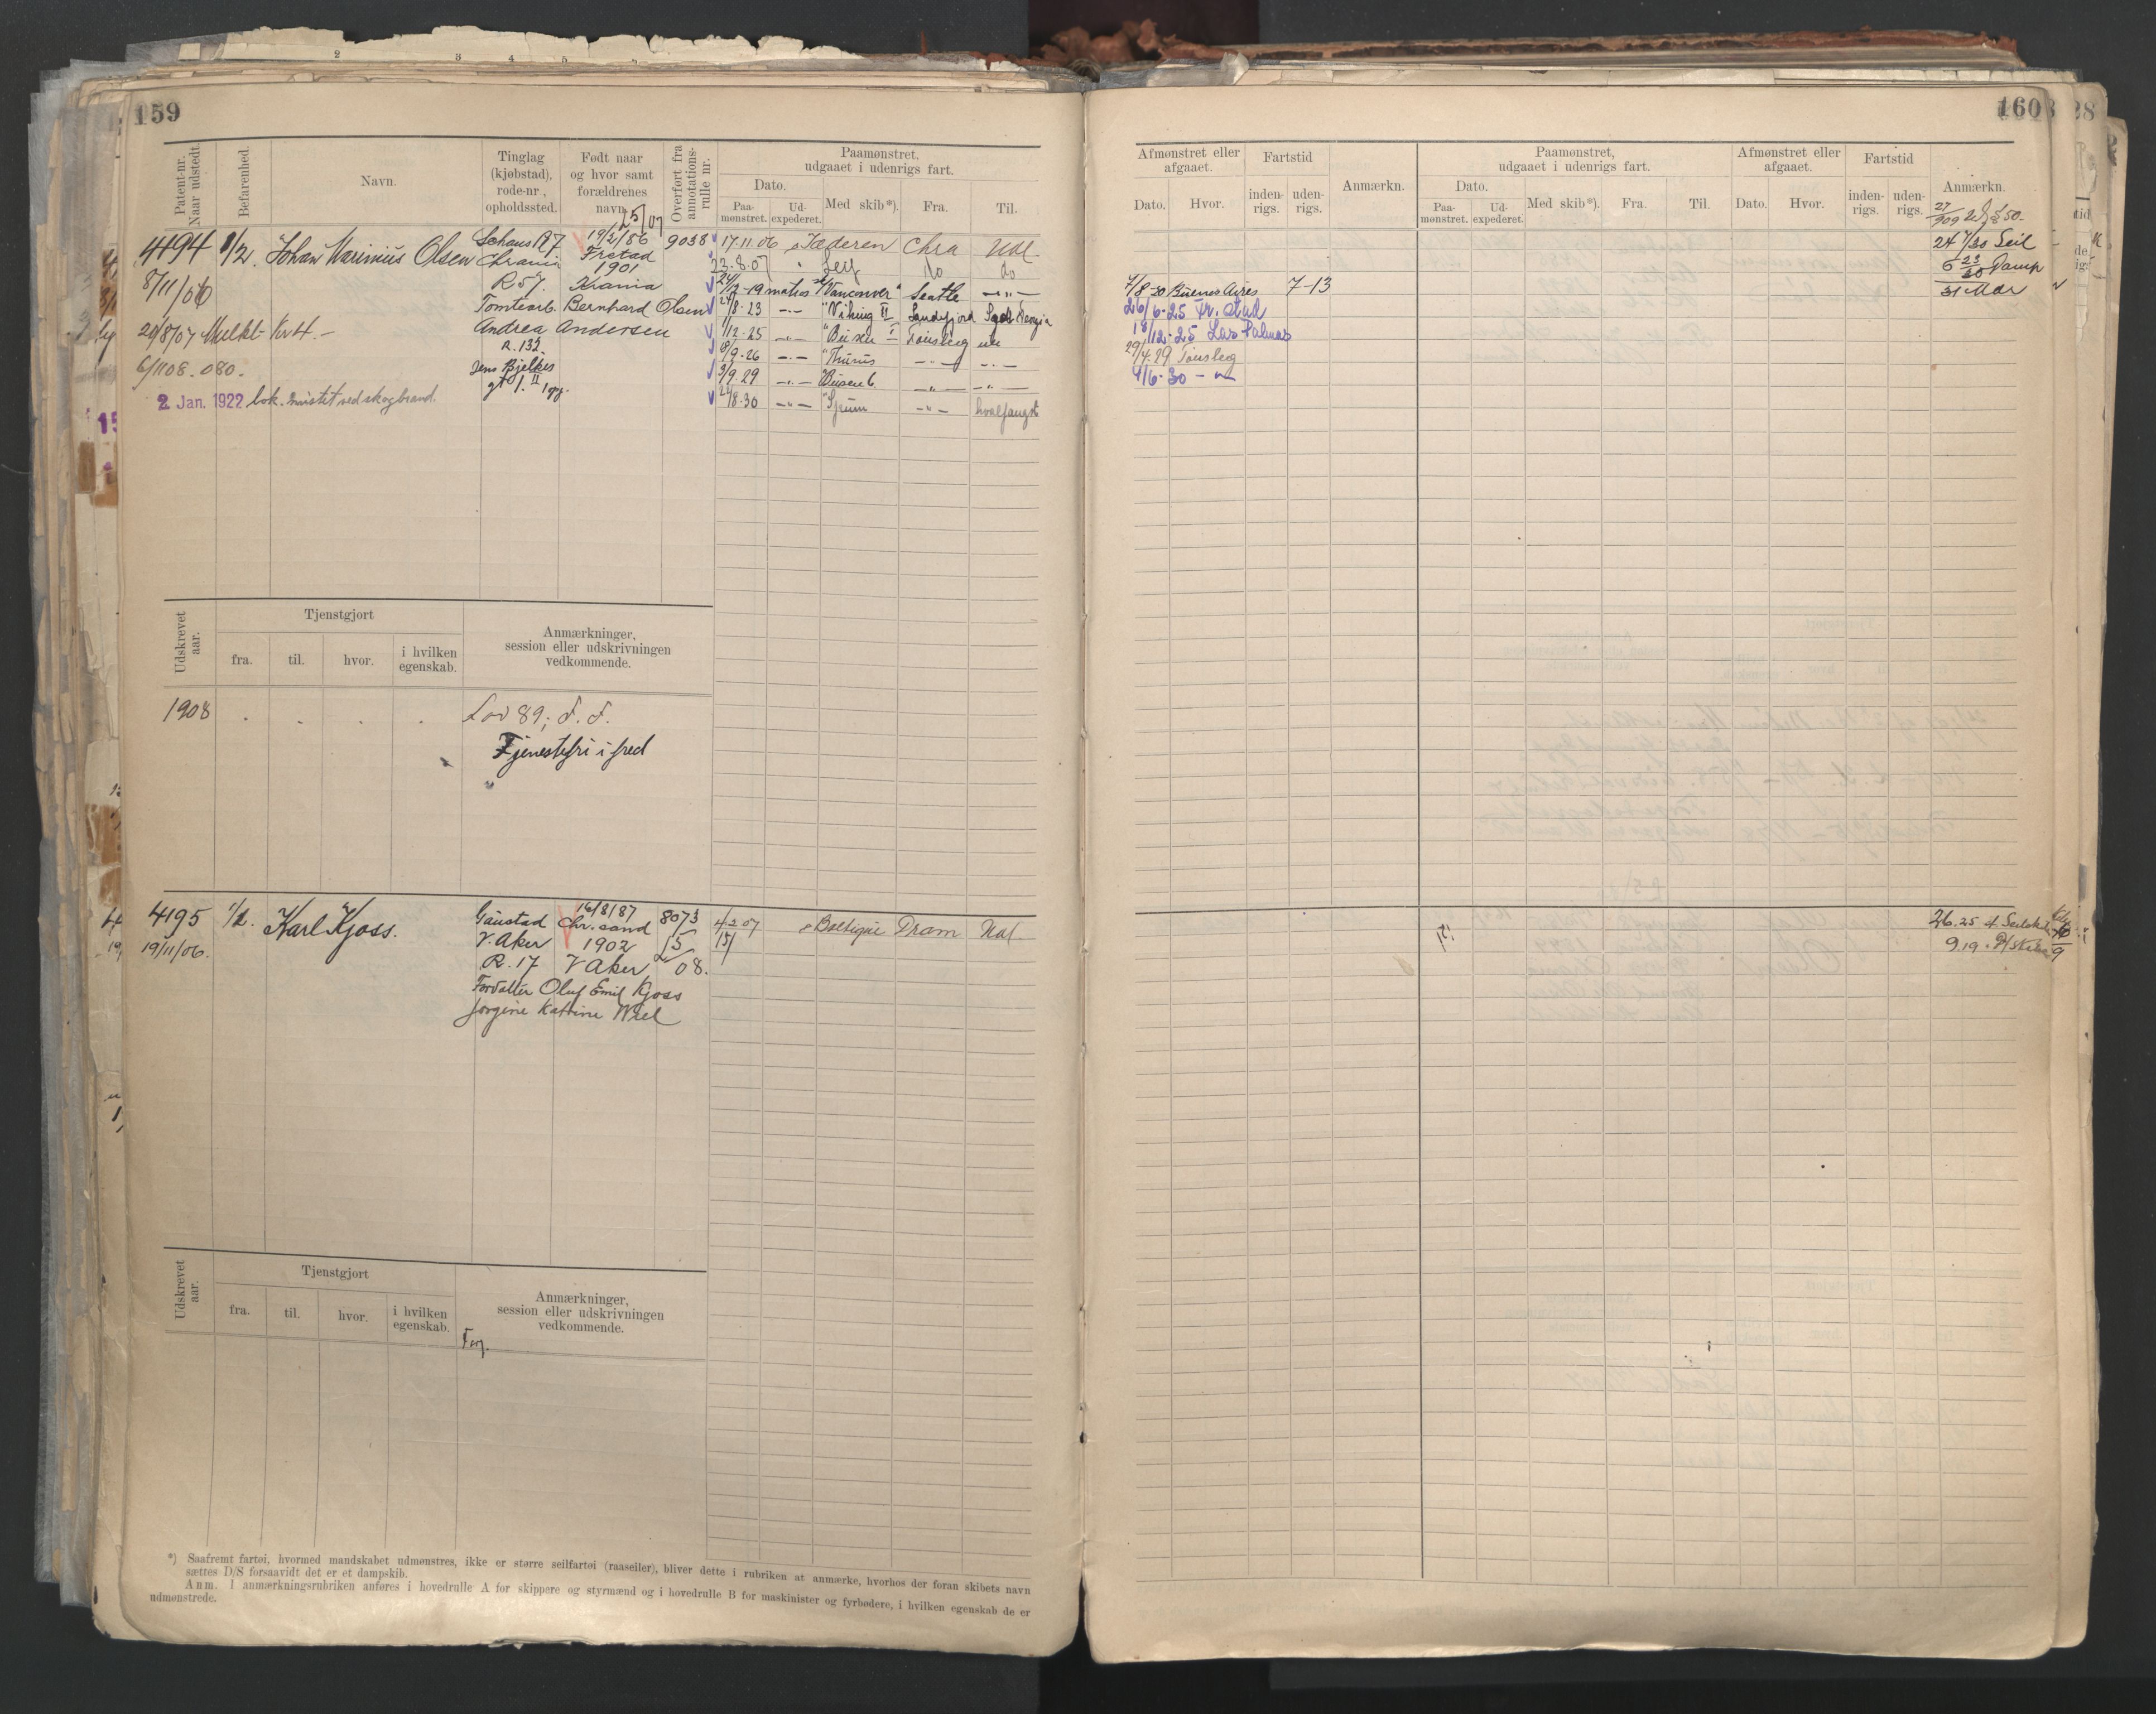 159
Patent-nr. Naar udstedt.
Befarenhed.
Navn.
Tinglag (kjøbstad), rode-nr., opholdssted.
Født naar og hvor samt forældrenes navn.
Overført fra annotations-rulle nr.
Paamønstret, udgaaet i udenrigs fart.
Dato.
Paa-mønstret.
Ud-expederet.
Med skib*).
Fra.
Til.
4194 1/2. Johan Marinius Olsen
8/11/06
Chrania
R 57.
19/2/86
Frstad
1901
Krania
9038
Tomtearb. Bernhard Olsen
Andrea Andersen
R. 132
Jens Bjelkes
gt 1. II
17.11.06 Jæderen Chra Udl.
23.8.07 " Leif do do
2-19 matros "Vancouver" Seatle —"—
8-23 —"— "Viking II Sandefjord
1/12-25 —"— Tønsberg
8/9-26 —"— "Thurus —"— —"—
3/9.29 —"— —"— —"—
8-30 —"— —"— hvalfangst
28/8/07 Mulkt Kr 4.—
6/11 08. 080.
2 Jan. 1922 bok. mistet ved skogbrand.
Udskrevet aar.
Tjenstgjort
fra.
til.
hvor.
i hvilken egenskab.
Anmærkninger, session eller udskrivningen vedkommende.
1908 . . . . Lov 89; F. F.
Tjenestefri i fred
4195 1/2. Karl Kjoss.
19/11/06.
Gaustad
V. Aker
R. 17
16/8/87
Chr. sand
1902
V Aker
8073
15/
08.
4/2 07 Baltique Dram Udl
15/
Forvalter Oluf Emil Kjoss
Jørgine Katrine Wiel
Udskrevet aar.
Tjenstgjort
fra.
til.
hvor.
i hvilken egenskab.
Anmærkninger, session eller udskrivningen vedkommende.
*) Saafremt fartøi, hvormed mandskabet udmønstres, ikke er større seilfartøi (raaseiler), bliver dette i rubriken at anmærke, hvorhos der foran skibets navn
sættes D/S forsaavidt det er et dampskib.
Anm. I anmærkningsrubriken anføres i hovedrulle A for skippere og styrmænd og i hovedrulle B for maskinister og fyrbødere, i hvilken egenskab de er
udmønstrede.
160
Afmønstret eller afgaaet.
Dato.
Hvor.
Fartstid
inden-rigs.
uden-rigs.
Anmærkn.
Paamønstret, udgaaet i udenrigs fart.
Dato.
Paa-mønstret.
Ud-expederet.
Med skib*).
Fra.
Til.
Afmønstret eller afgaaet.
Dato.
Hvor.
Fartstid
inden-rigs.
uden-rigs.
Anmærkn.
24 7/30 Seil
6 23/30 Damp
31 Mdr
7/8-20 Buenos Aires 7-13
26/6-25 Fr. stad
18/12-25 Las Palmas
29/4.29 Tønsberg
4/6-30 — " —
26.25
9 19